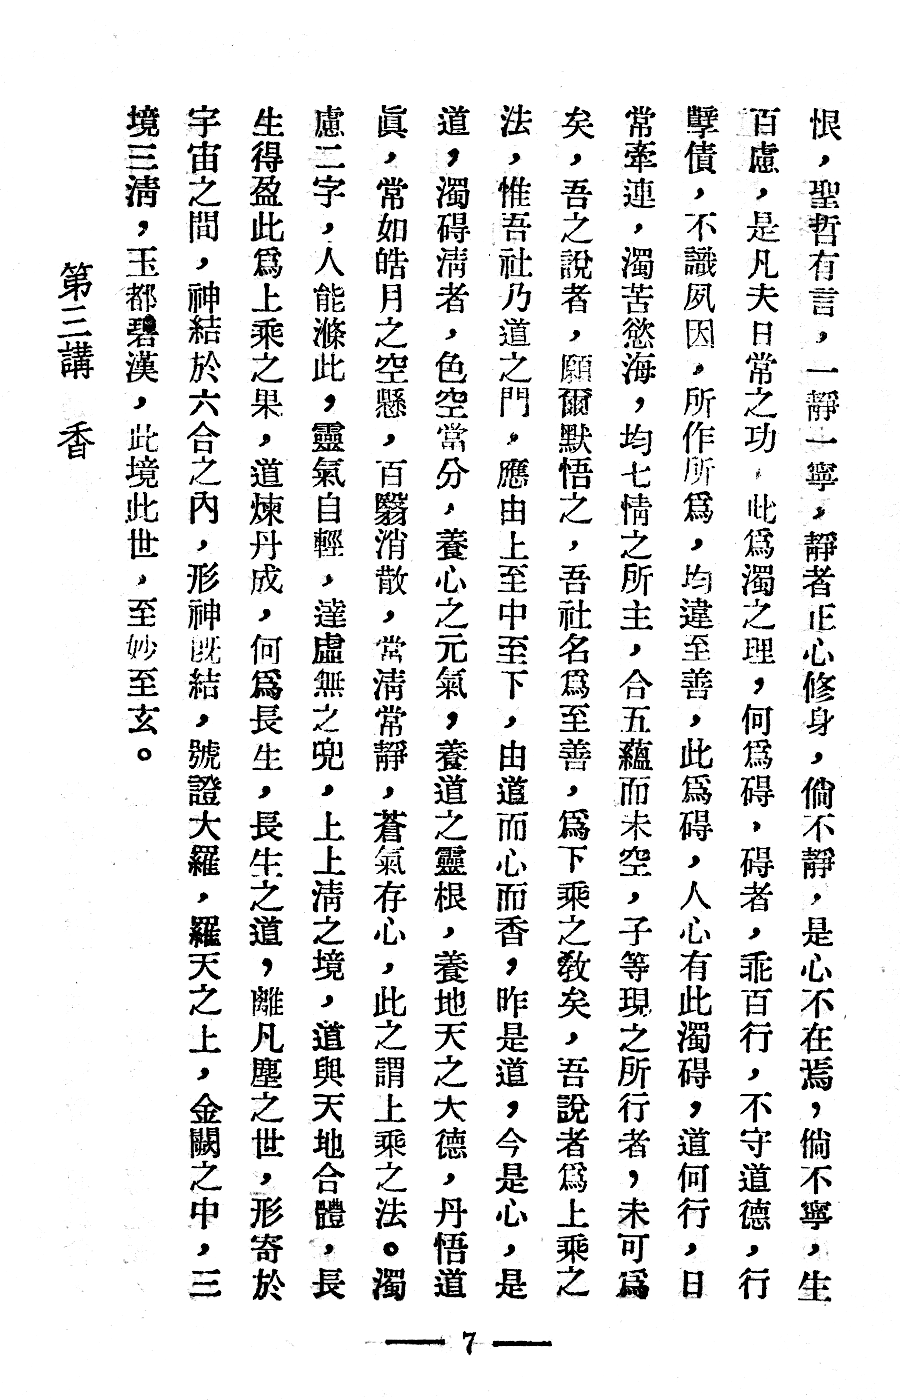 恨，聖哲有言，一靜一寧，靜者正心修身，倘不靜，是心不在焉，倘不寧，生
百慮，是凡夫日常之功，此爲濁之理，何爲碍，碍者，乖百行，不守道德，行
孽債，不識夙因，所作所爲，均違至善，此爲碍，人心有此濁碍，道何行，日
常牽連，濁苦慾海，均七情之所主，合五蘊而未空，子等現之所行者，未可爲
矣，吾之說者，願爾默悟之，吾社名爲至善，爲下乘之敎矣，吾說者爲上乘之
法，惟吾社乃道之門，應由上至中至下，由道而心而香，昨是道，今是心，是
道，濁碍淸者，色空當分，養心之元氣，養道之靈根，養地天之大德，丹悟道
眞，常如皓月之空懸，百翳消散，常淸常靜，蒼氣存心，此之謂上乘之法。濁
慮二字，人能滌此，靈氣自輕，達虛無之兜，上上淸之境，道與天地合體，長
生得盈此爲上乘之果，道煉丹成，何爲長生，長生之道，離凡塵之世，形寄於
宇宙之間，神結於六合之內，形神旣結，號證大羅，羅天之上，金闕之中，三
境三淸，玉都碧漢，此境此世，至妙至玄。
第三講 香
7